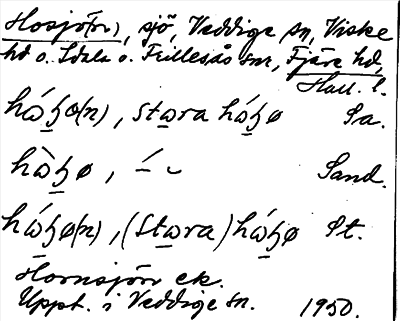 Hosjö(n), sjö, Veddige sn, Viske
hd o. Idala o. Frillesås snr, Fjäre hd,
Hall. l.
hώɧø(n), stωra hώɧø Sa.
hὼɧø, –́ ⌣ Sand.
hώɧø(n), (stωra) hώɧø St.
Hornsjön ek.
Uppt. i Veddige sn. 1950.